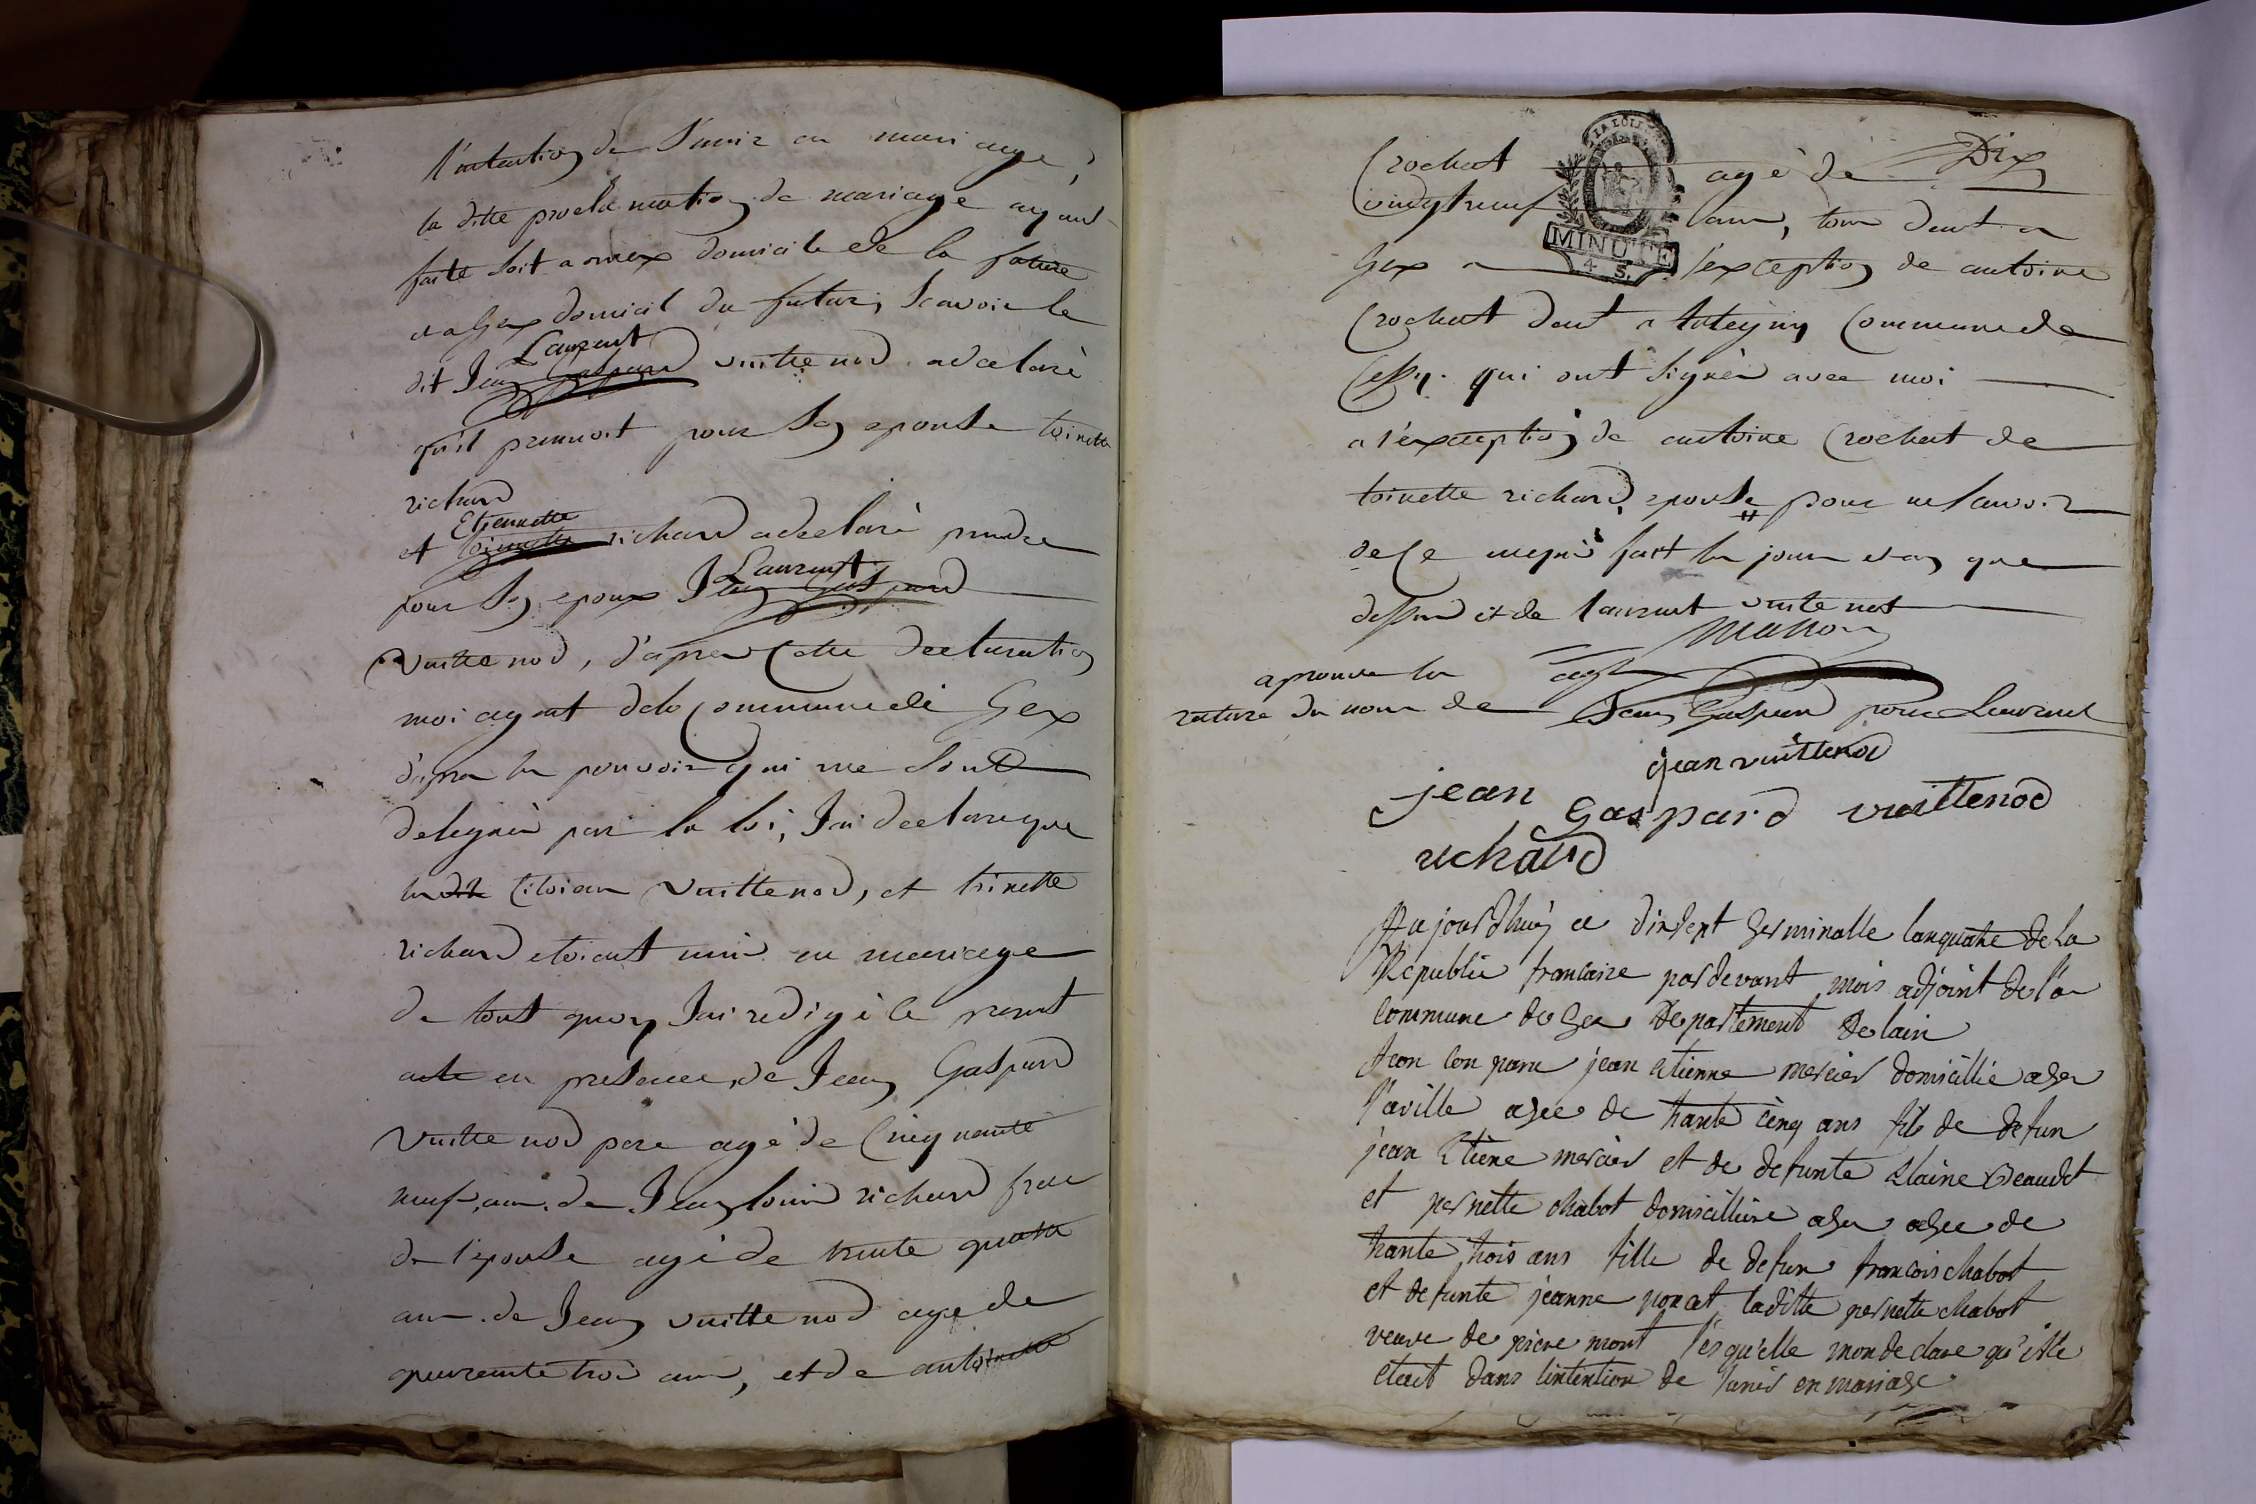 l'intention de s'unir en mariage,
la ditte proclamation de mariage ayant
faite soit a ornex domicile de la future
et a Gex domicil du futur, scavoir le
Laurent
dit Jean Gaspard vuittenod a declaré
qu'il prennoit pour son epouse toinette
richard
Etiennette
et toinette richard a declaré prendre
Laurent
pour son epoux Jean Gaspard
vuittenod, d'apres cette declaration
moi agent de la commune de Gex
d'apres les pouvoir qui me sont
delegués par la loi, J'ai declare que
les dit citoien vuittenod, et toinette
richard etoient unis en mariage
de tout quoy J'ai redigé le present
acte en presence, de Jean Gaspard
vuittenod pere agé de cinquante
neuf ans. de Jean louis richard frere
de l'epouse agé de trente quatre
ans. de Jean vuittenod age de
quarente trois ans, et de antoine
Crochat agé de Dix
vingt neuf ans, tous deut a
MINUTE
4 S.
Gex a l'exception de antoine
Crochat deut a commune de
Cessy. qui ont signés avec moi
a l'exception de antoine Crochat de
toinette richard, epouse pour ne savoir
de ce fait les jour et an que
dessus et de laurent vuitenot
aprouve la agt
rature du nom de Jean Gaspard pour Laurent
jean vuittenod
jean Gaspard vuittenod
richard
Aujourdhuÿ ce disept Germinalle lanquatre de la
Republic francaise pardevant mois adjoint de la
commune de Gex Departement de lain
jean etienne mercier domicillié a Gex
la ville agee de trante cinq ans fils de defun
jean Etiene mercier et de defunte Beaudet
et pernette chabot domicilliere a Gex agee de
trante trois ans fille de defun francois chabot
et defunte jeanne poncet laditte pernette chabot
veuve de piere mont lesquelle mon declare qu'ille
etait dans lintention de sunir en mariage